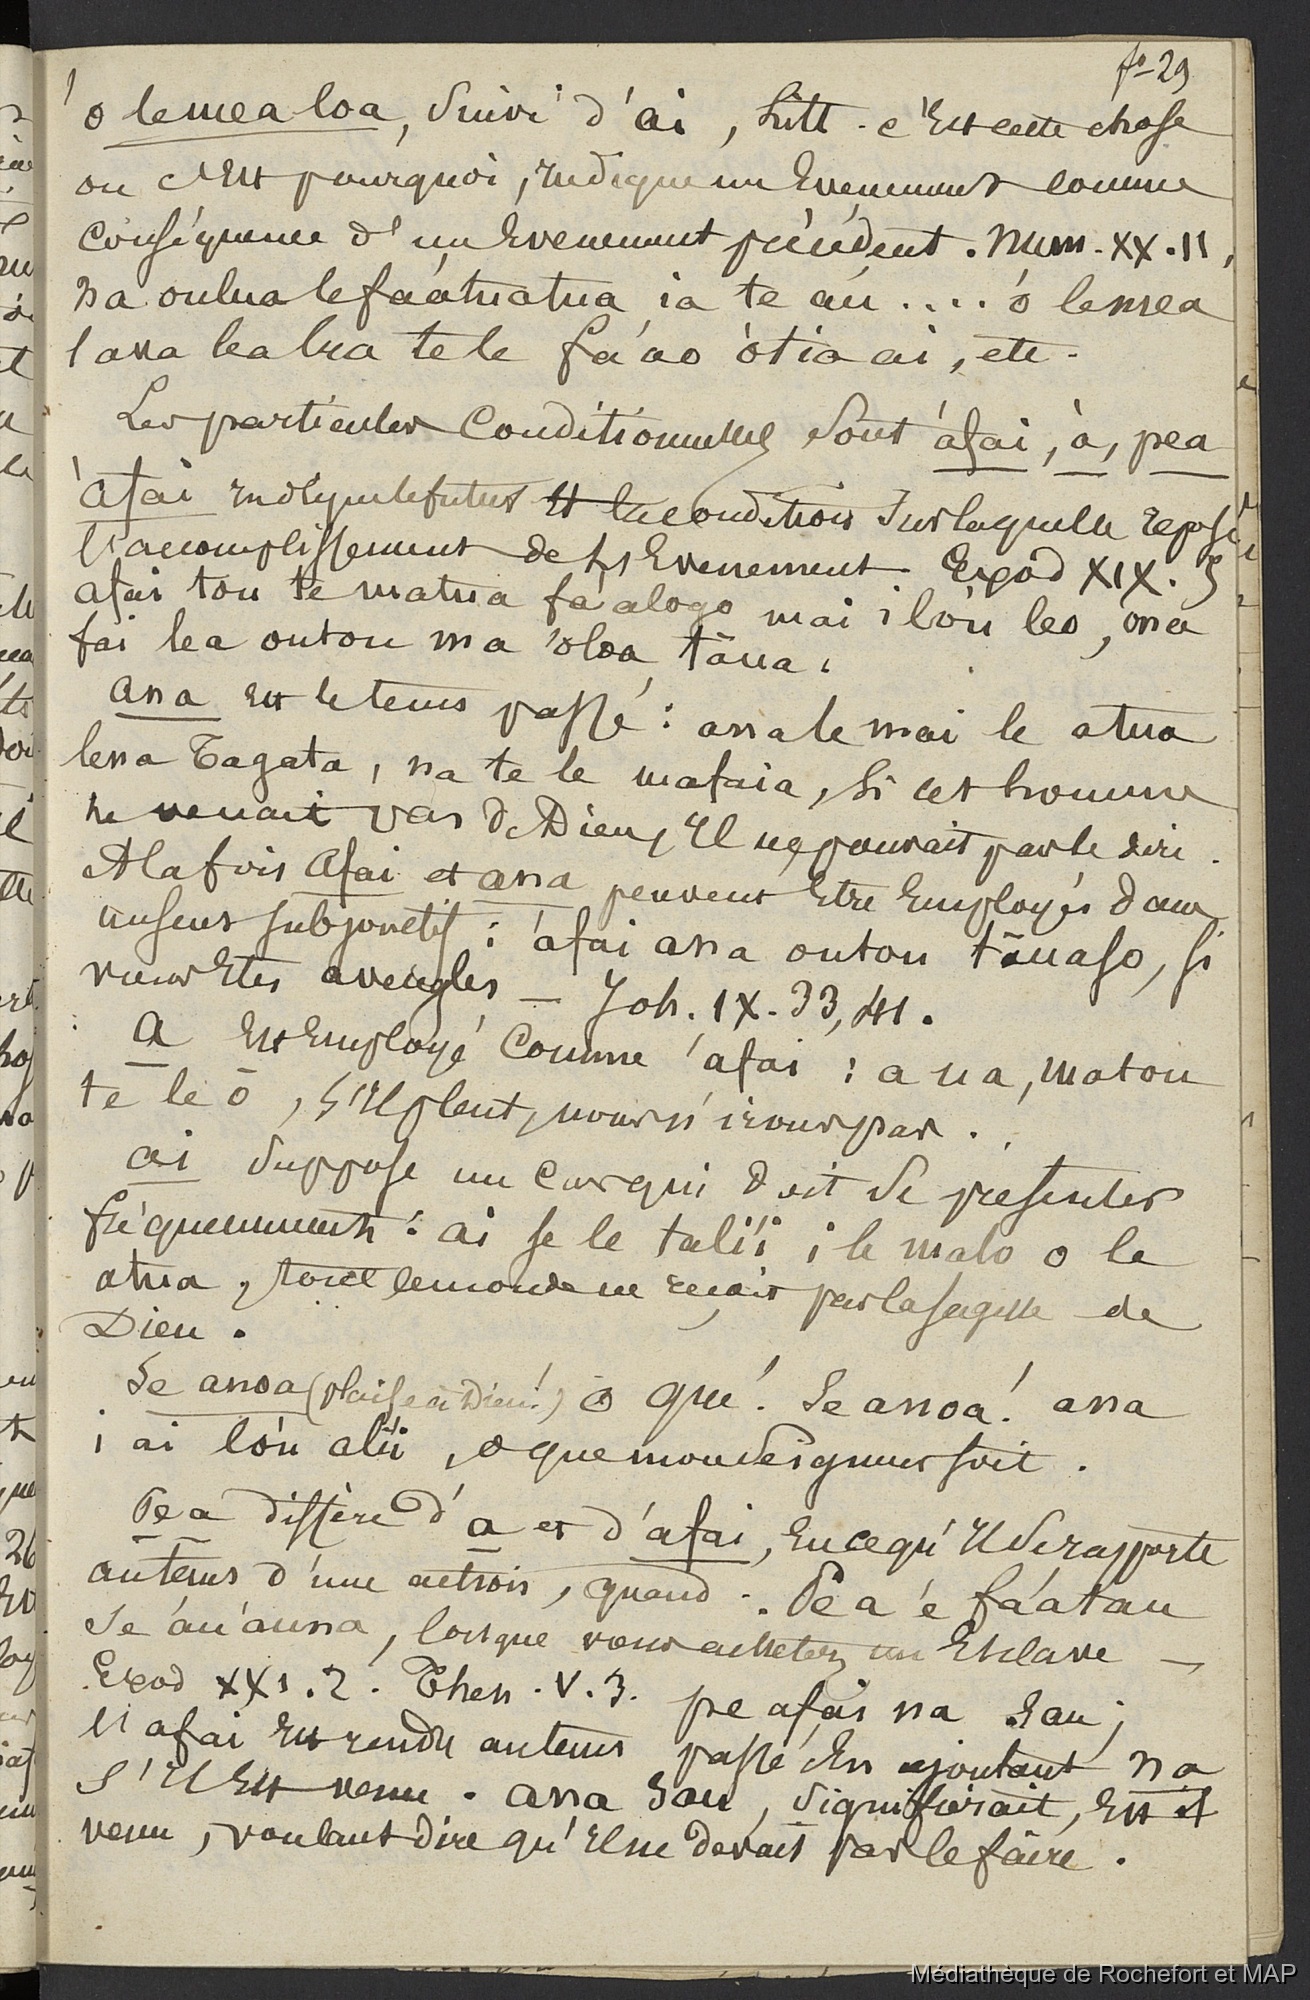 fo 29
'o le mea loa, suivi d'ai, Litt. c'Est cette chose
ou c'Est pourquoi, indique un Evenement comme
conséquence d'un Evenement précédent. Num. XX. 11,
na oulua le fáátuatua ia te áu .... ó le mea
l ava lea lua te le fá'ao ótia ai, etc.
Les particules Conditionnelles sont áfai, à, pea
áfai indique le futur et la condition sur laquelle repose
l'accomplissement de l'Evenement. Exod XIX. 5
afai tou te matua fáalogo mai i lóu leo, ona
fai lea outou ma óloa tāua.
ana Est le tems passé : ana le mai le atua
lena Tagata, na te le mafaia, Si cet homme
ne venait pas de Dieu, Il ne pouvait pas le dire.
A la fois afai et ana peuvent Etre Employés dans
un sens subjonctif : áfai ana outou tāuaso, si
vous Etes aveugles — Joh. IX. 33, 41.
A Est Employé Comme áfai : a ua, matou
te le ō, S'Il pleut, nous n'irons pas.
ai Suppose un cas qui doit se presenter
fréquemment : ai se le talíi i le malo o le
atua, tout le monde ne reçoit pas la sagesse de
Dieu.
Se anoa (plaise à Dieu!) o que! Se anoá! ana
i ai lóu alíi, o que mon Seigneur soit.
Pea differe d'a et d'afai, En ce qu'Il se rapporte
au tems d'une action, quand. Pe a é fáatau
se áuáuna, lorsque vous achetez un Esclave —
Exod XXI. 2. Thess. V. 3. pe afai na sau ;
Si afai Est rendu au tems passé En ajoutant na
S'Il Est venu. ana sau, Signifierait, Est il
venu, voulant dire qu'Il ne devait pas le faire.
Médiathèque de Rochefort et MAP